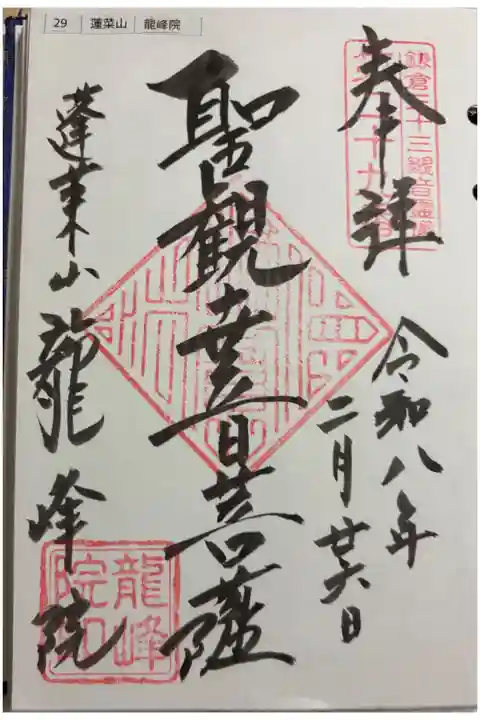 29 蓮菜山 龍峰院
奉拝
鎌倉三十三観音霊場
令和八年
二月廿六日
聖観世音菩薩
蓬莱山 龍峰院
龍峰院印